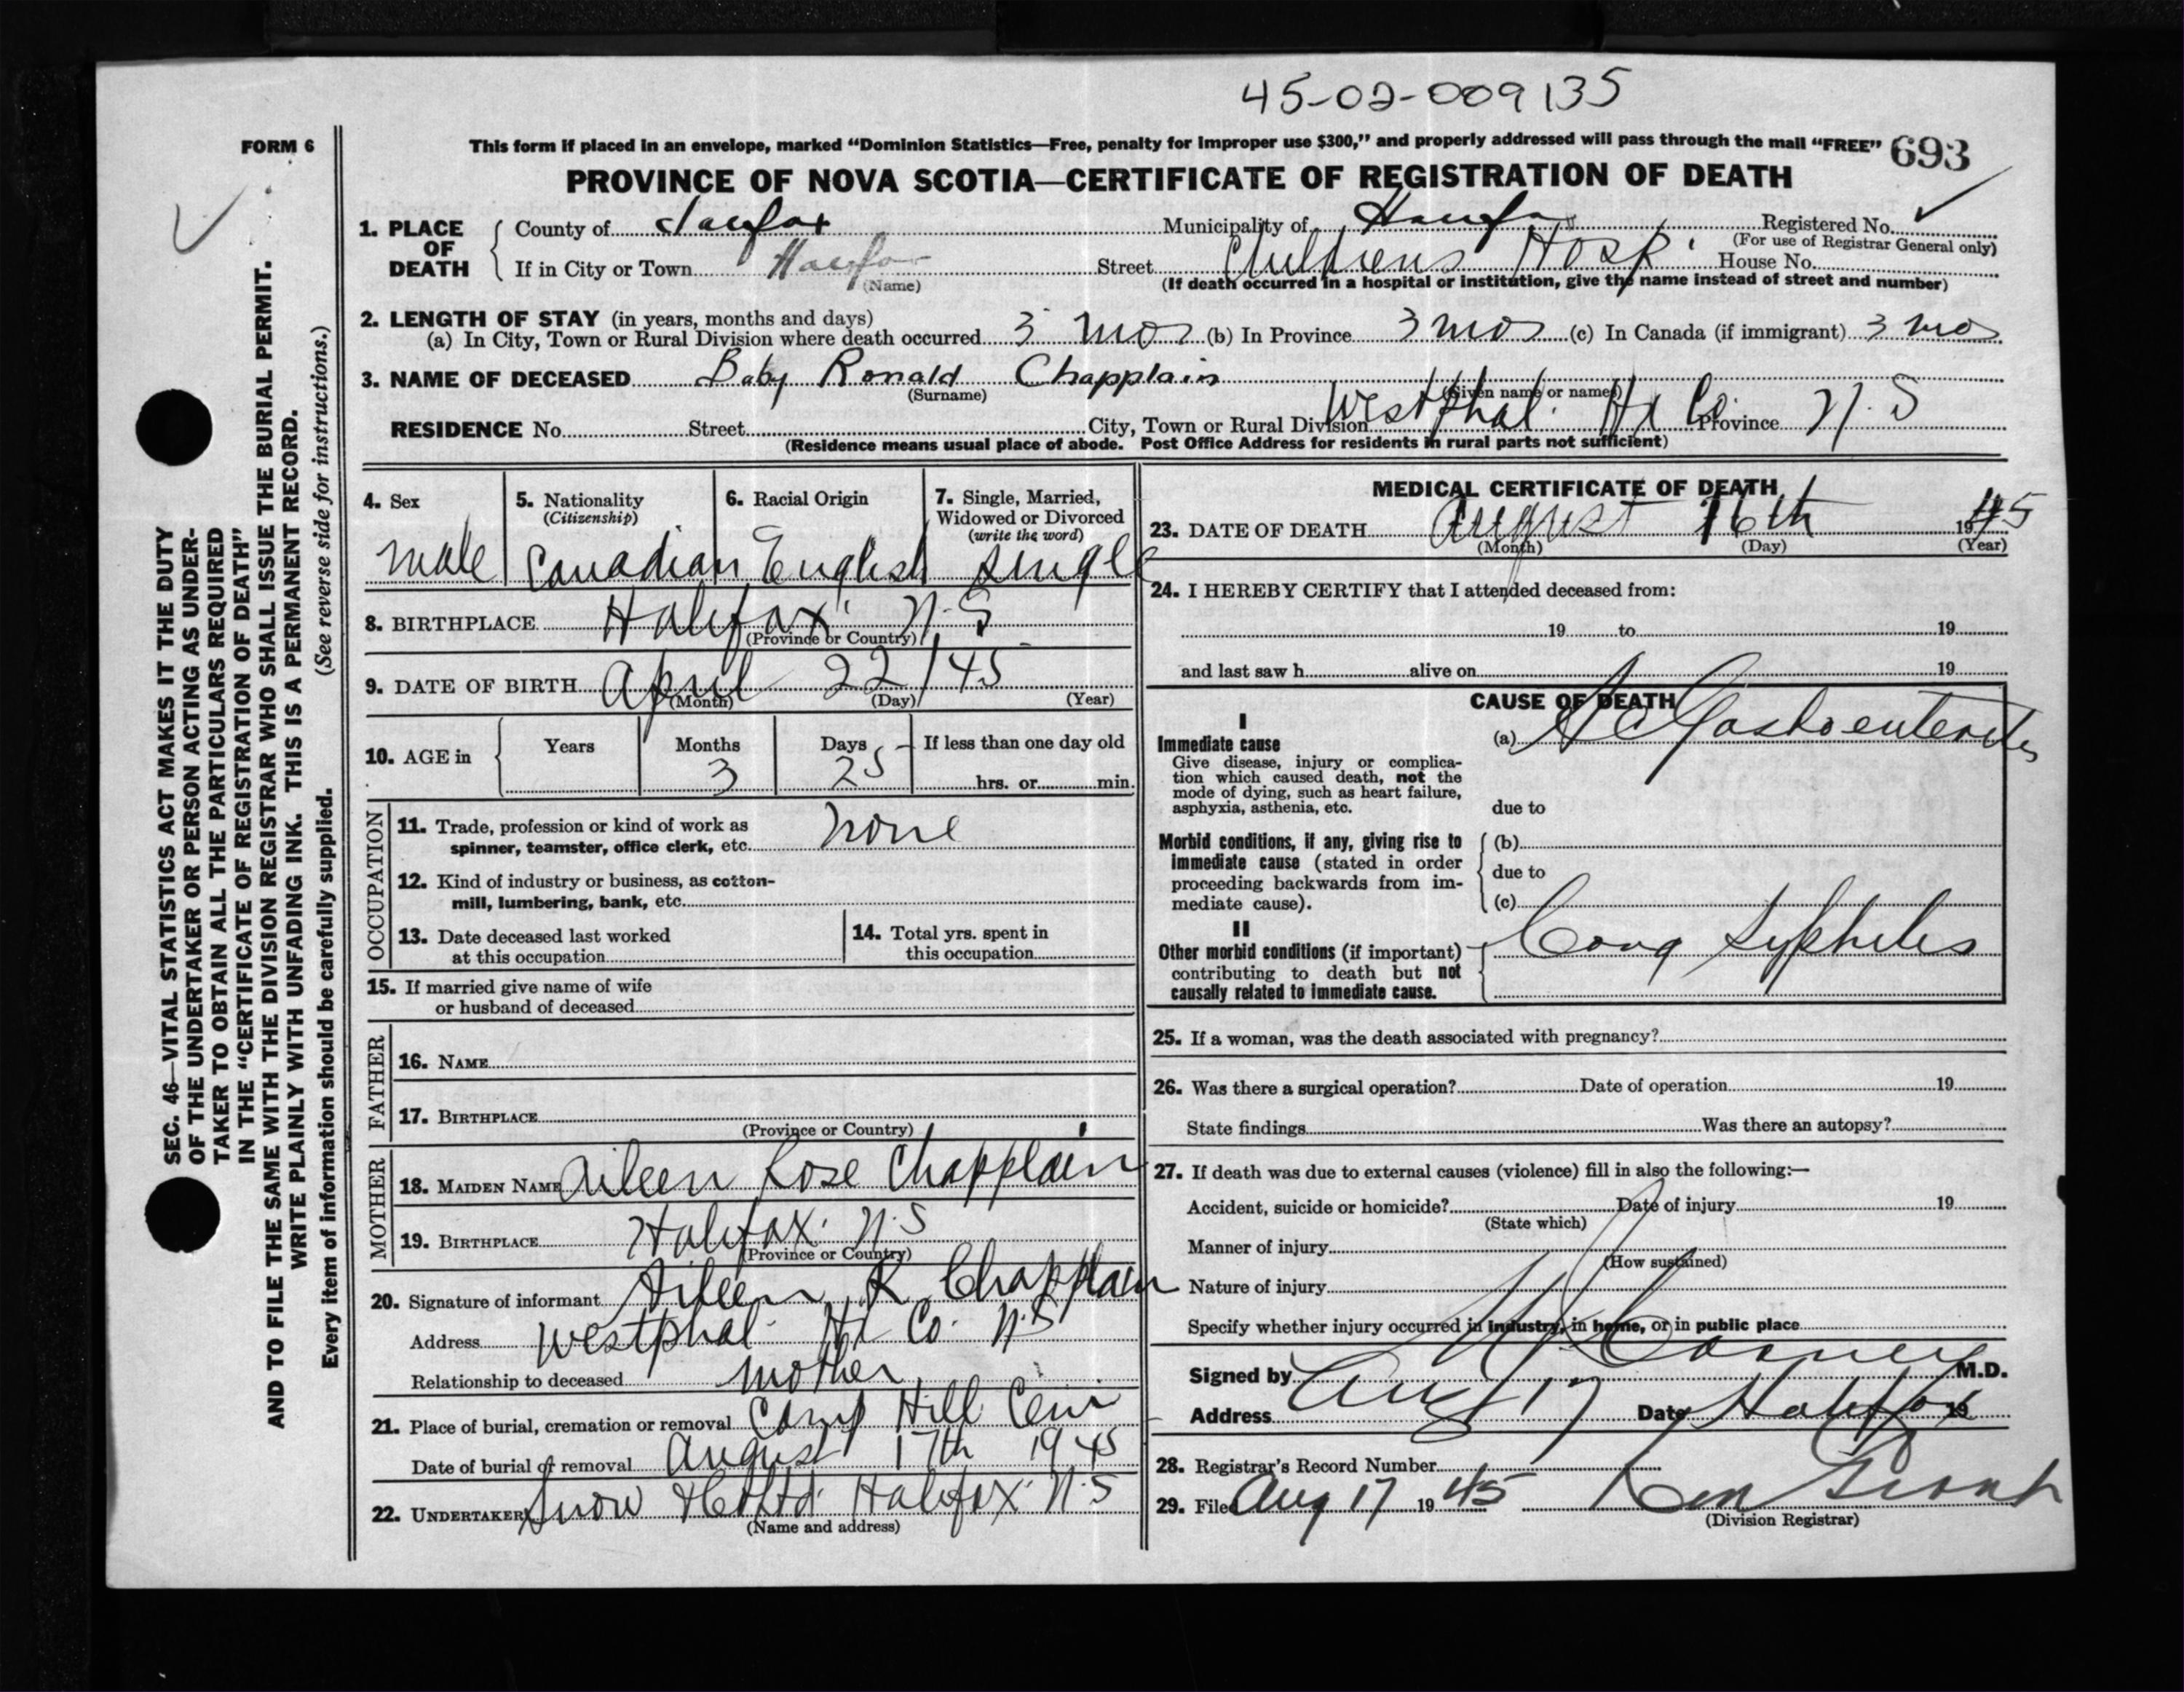 45-02-009135
FORM 6
This form if placed in an envelope, marked "Dominion Statistics—Free, penalty for improper use $300," and properly addressed will pass through the mail "FREE" 693
PROVINCE OF NOVA SCOTIA—CERTIFICATE OF REGISTRATION OF DEATH
1. PLACE OF DEATH
County of Halifax Municipality of Halifax Registered No.
(For use of Registrar General only)
If in City or Town Halifax Street Childrens Hosp. House No.
(Name) (If death occurred in a hospital or institution, give the name instead of street and number)
2. LENGTH OF STAY (in years, months and days)
(a) In City, Town or Rural Division where death occurred 3 mos (b) In Province 3 mos (c) In Canada (if immigrant) 3 mo
3. NAME OF DECEASED Baby Ronald Chapplain
(Surname) (Given name or names)
RESIDENCE No. Street City, Town or Rural Division Westphal. Hx Co. Province N.S
(Residence means usual place of abode. Post Office Address for residents in rural parts not sufficient)
4. Sex
male
5. Nationality
(Citizenship)
Canadian
6. Racial Origin
English
7. Single, Married,
Widowed or Divorced
(write the word)
single
8. BIRTHPLACE Halifax N.S
(Province or Country)
9. DATE OF BIRTH April 22/45
(Month) (Day) (Year)
10. AGE in Years Months Days If less than one day old
3 25 hrs. or min.
OCCUPATION
11. Trade, profession or kind of work as
spinner, teamster, office clerk, etc. none
12. Kind of industry or business, as cotton-
mill, lumbering, bank, etc.
13. Date deceased last worked
at this occupation
14. Total yrs. spent in
this occupation
15. If married give name of wife
or husband of deceased
FATHER
16. NAME
17. BIRTHPLACE
(Province or Country)
MOTHER
18. MAIDEN NAME Aileen Rose Chapplain
19. BIRTHPLACE Halifax. N.S
(Province or Country)
20. Signature of informant Aileen R Chapplain
Address Westphal Hx Co. N.S
Relationship to deceased mother
21. Place of burial, cremation or removal Camp Hill Cem
Date of burial or removal August 17th 1945
22. UNDERTAKER Snow & Co Ltd. Halifax N.S
(Name and address)
MEDICAL CERTIFICATE OF DEATH
23. DATE OF DEATH August 16th 1945
(Month) (Day) (Year)
24. I HEREBY CERTIFY that I attended deceased from:
19 to 19
and last saw h alive on 19
CAUSE OF DEATH
I
Immediate cause
Give disease, injury or complica-
tion which caused death, not the
mode of dying, such as heart failure,
asphyxia, asthenia, etc.
(a) Ac Gastroenteritis
due to
Morbid conditions, if any, giving rise to
immediate cause (stated in order
proceeding backwards from im-
mediate cause).
(b)
due to
(c)
II
Other morbid conditions (if important)
contributing to death but not
causally related to immediate cause.
Cong Syphilis
25. If a woman, was the death associated with pregnancy?
26. Was there a surgical operation? Date of operation 19
State findings Was there an autopsy?
27. If death was due to external causes (violence) fill in also the following:—
Accident, suicide or homicide? Date of injury 19
(State which)
Manner of injury
(How sustained)
Nature of injury
Specify whether injury occurred in industry, in home, or in public place
Signed by M.D.
Address Aug 17 Date Halifax 19
28. Registrar's Record Number
29. Filed Aug 17 1945
(Division Registrar)
SEC. 46—VITAL STATISTICS ACT MAKES IT THE DUTY
OF THE UNDERTAKER OR PERSON ACTING AS UNDER-
TAKER TO OBTAIN ALL THE PARTICULARS REQUIRED
IN THE "CERTIFICATE OF REGISTRATION OF DEATH"
AND TO FILE THE SAME WITH THE DIVISION REGISTRAR WHO SHALL ISSUE THE BURIAL PERMIT.
WRITE PLAINLY WITH UNFADING INK. THIS IS A PERMANENT RECORD.
Every item of information should be carefully supplied. (See reverse side for instructions.)